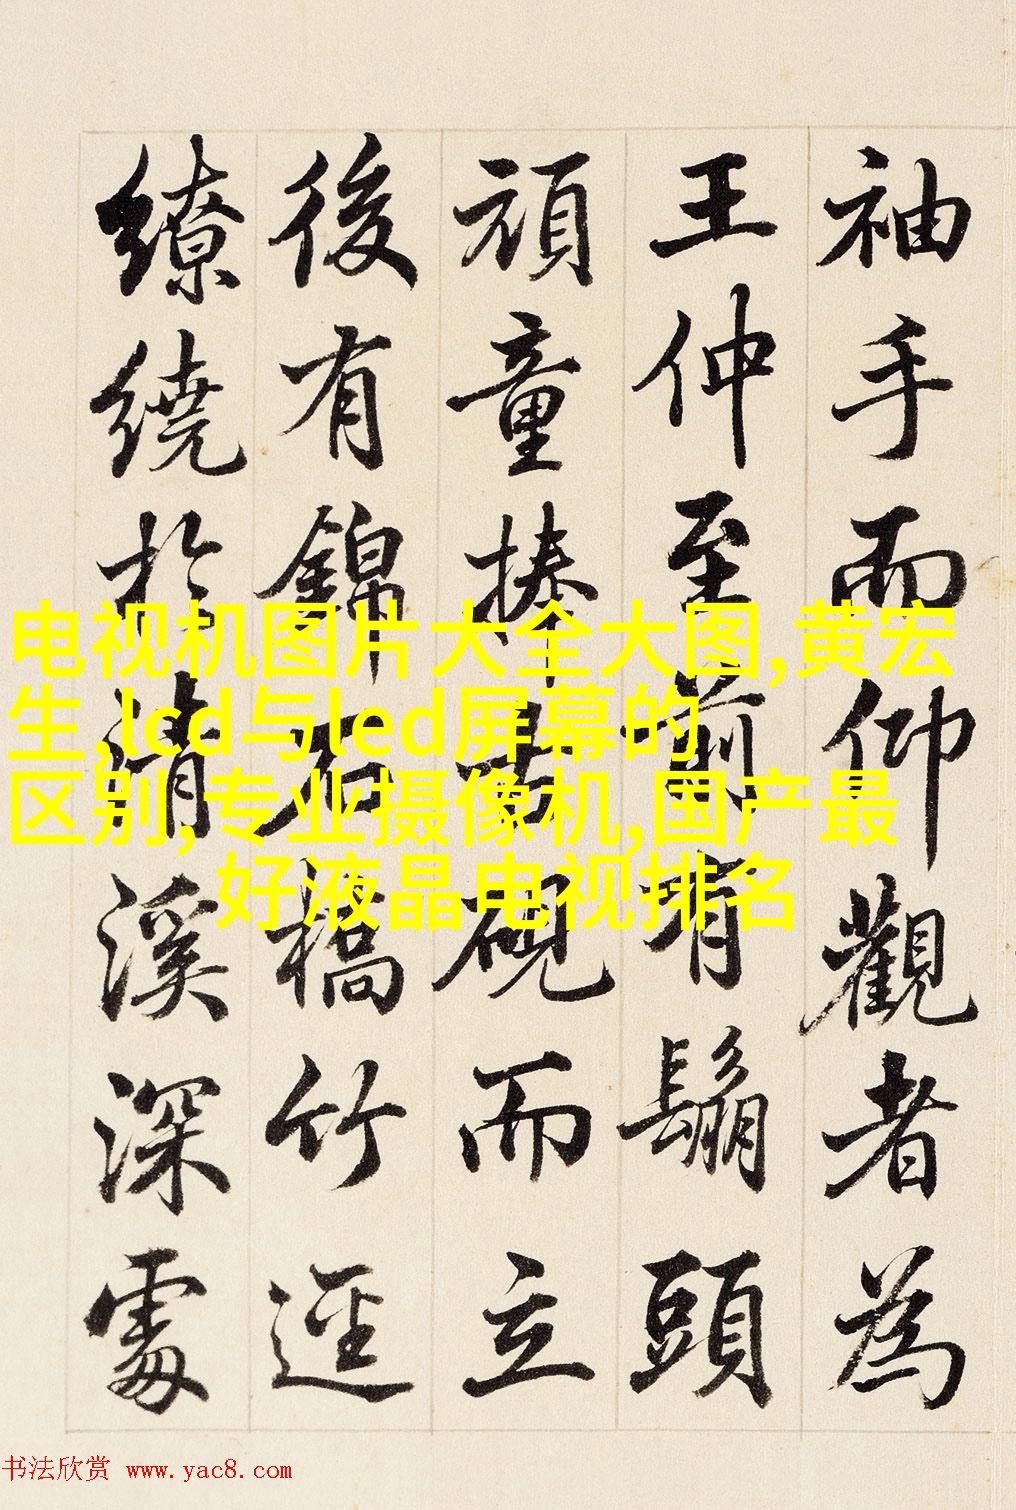 袖手而仰觀者為
王仲至前有鬅頭
頑童捧古硯而立
後有錦石橋竹逕
繚繞於清溪深處
电视机图片大全大图,黄宏
生,lcd与led屏幕的
区别,专业摄像机,国产最
好液晶电视排名
书法欣赏 www.yac8.com